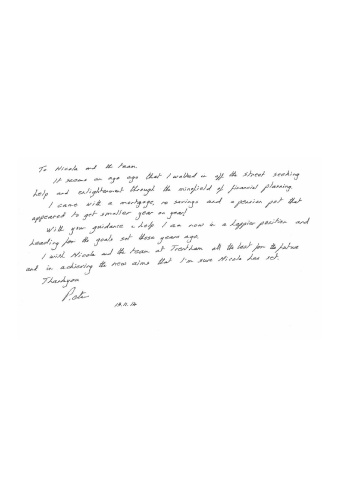 To Nicola and the team.
It seems an age ago that I walked in off the street seeking
help and enlightenment through the minefield of financial planning.
I came with a mortgage, no savings and a pension pot that
appeared to get smaller year on year!
With your guidance & help I am now in a happier position and
heading for the goals set those years ago.
I wish Nicola and the team at Trentham all the best for the future
and in achieving the new aims that I'm sure Nicola has set.
Thankyou
Peter